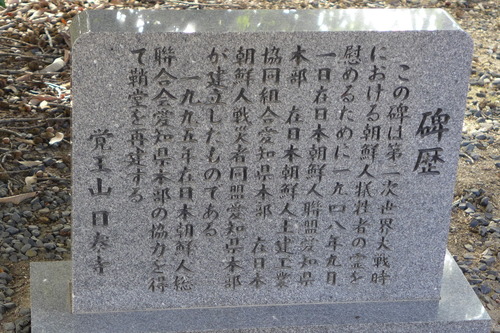 碑歴
この碑は第一次世界大戦時
における朝鮮人犠牲者の霊を
慰めるために一九四八年九月
一日在日本朝鮮人聯盟愛知県
本部　在日本朝鮮人土建工業
協同組合愛知県本部　在日本
朝鮮人戦災者同盟愛知県本部
が建立したものである
一九九五年在日本朝鮮人総
聯合会愛知県本部の協力を得
て鞘堂を再建する
覚王山日泰寺